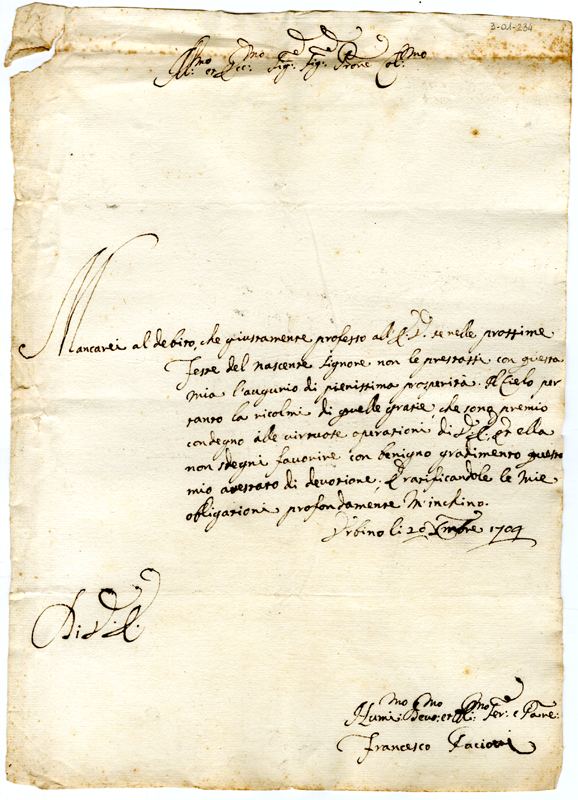 3-01-234
Ill:mo et Ecc:mo Sig:e Sig:e Prone Ol:mo
Mancarei al debito, che giustamente professo all'E. V. se nelle prossime
Feste del nascente Signore non le prestassi con questa
mia l'augurio di pienissima prosperità. Il Cielo per
tanto la ricolmi di quelle grazie, che sono premio
condegno alle virtuose operationi di V. E. Et ella
non sdegni favorire con benigno gradimento questo
mio attestato di devotione, e ratificandole le mie
obligationi profondamente m'inchino.
Urbino li 20 Xmbre 1704
Di V. E.
Humi:mo Devo:mo et Obl:mo Ser:e e
Francesco